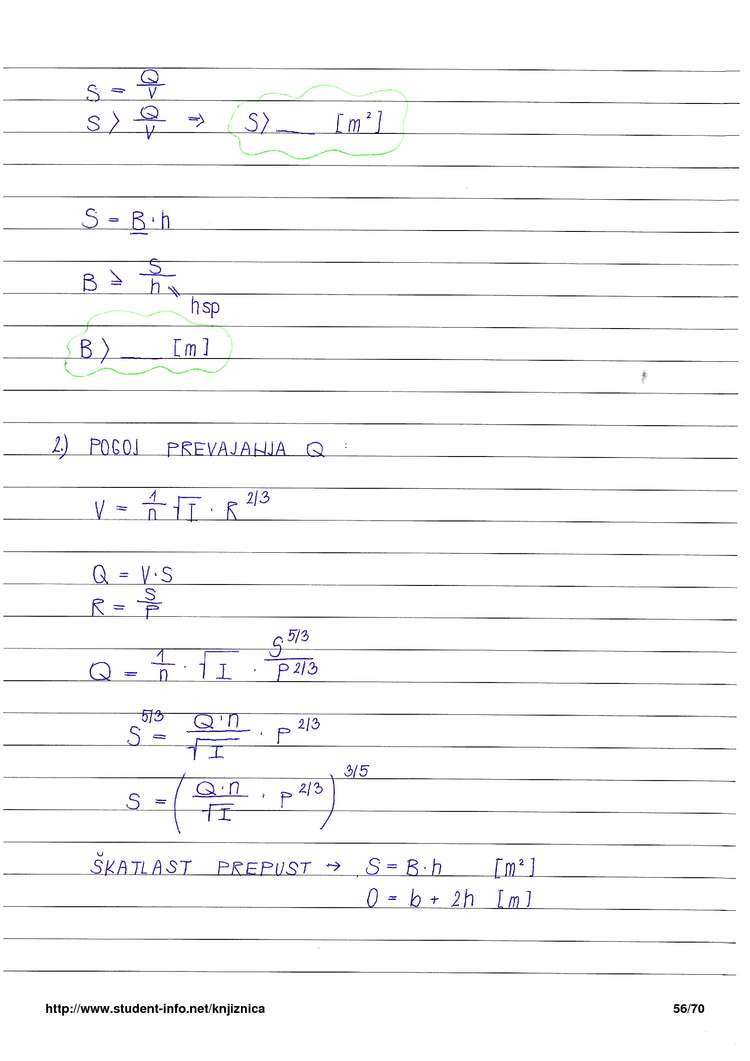 S = Q/V
S > Q/V ⇒ S > ___ [m²]
S = B·h
B ≥ S/h
hsp
B > ___ [m]
2.) POGOJ PREVAJANJA Q :
V = 1/n √I · R^2/3
Q = V·S
R = S/P
Q = 1/n · √I · S^5/3 / P^2/3
S^5/3 = Q·n/√I · P^2/3
S = (Q·n/√I · P^2/3)^3/5
ŠKATLAST PREPUST → S = B·h [m²]
O = b + 2h [m]
http://www.student-info.net/knjiznica 56/70